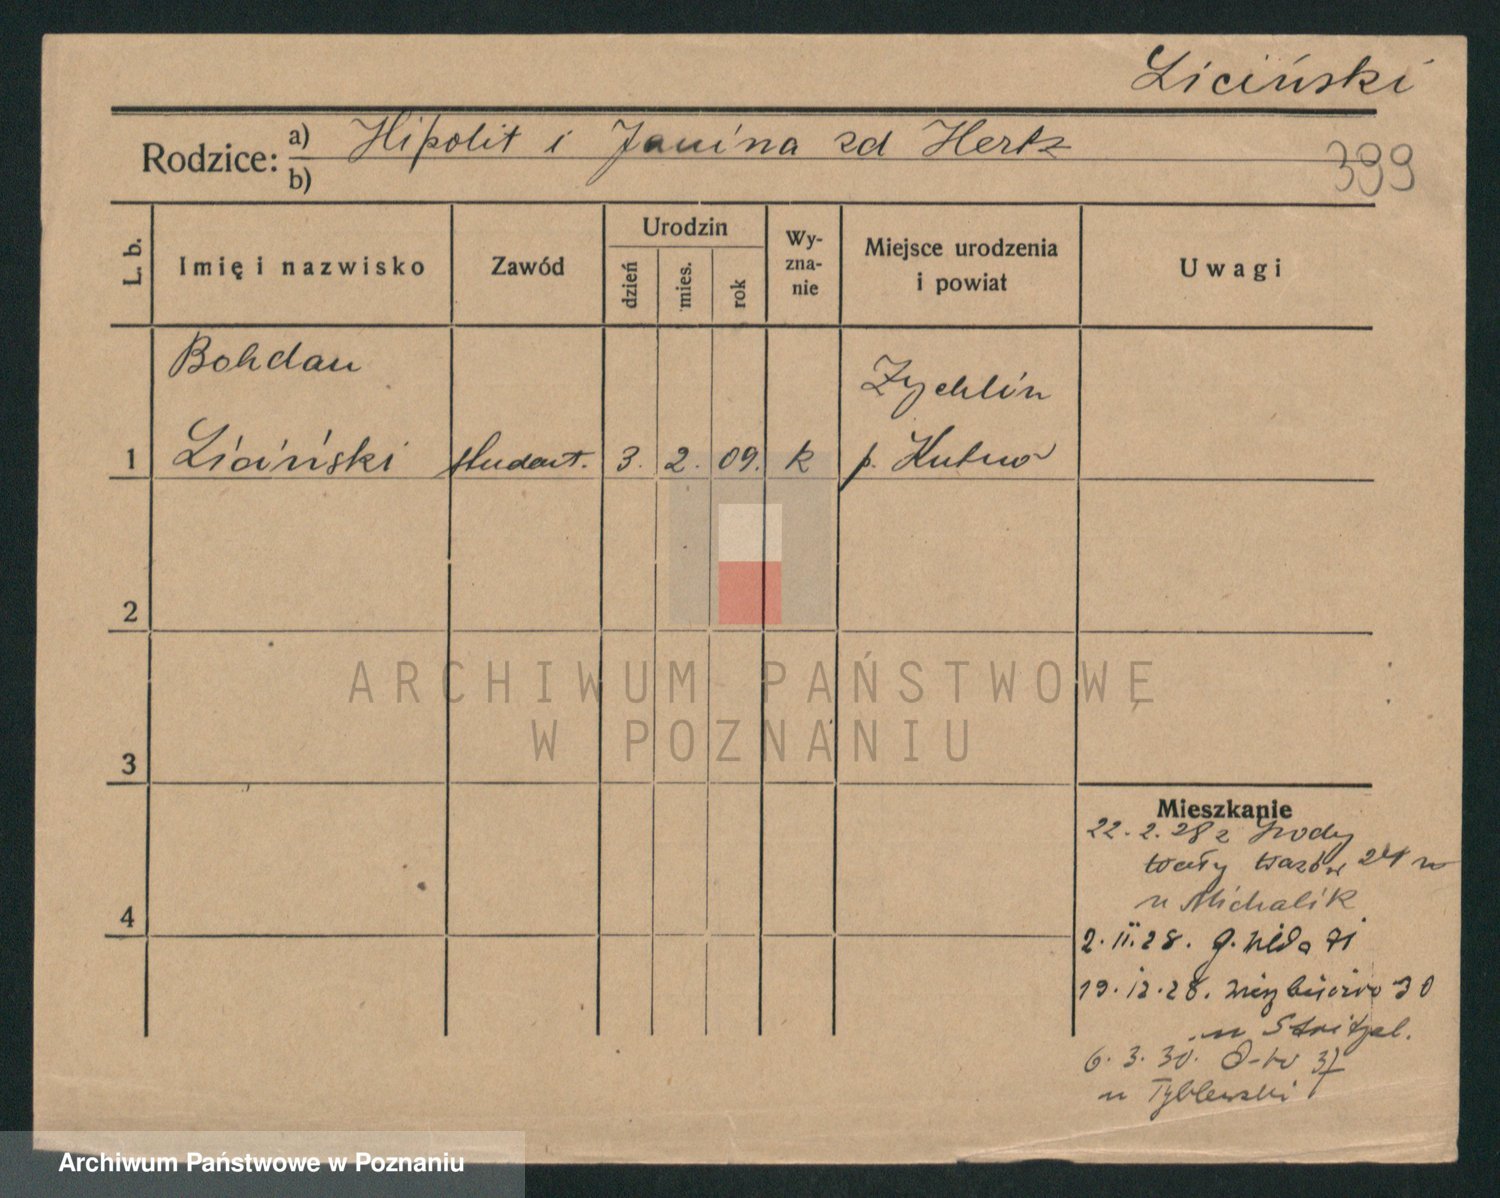 Liciński
Rodzice: a) Hipolit i Janina zd Hertz
b)
399
L. b.
Imię i nazwisko
Zawód
Urodzin
dzień
mies.
rok
Wy-
zna-
nie
Miejsce urodzenia
i powiat
Uwagi
Bohdan
Żychlin
1 Liciński student. 3. 2. 09. k p. Kutno
2
ARCHIWUM PAŃSTWOWE
W POZNANIU
3
Mieszkanie
22. 2. 28 z Środy
Wały Wazów 24
u Michalik
4
2. II. 28. g. Wilda 71
19. 12. 28. 30
u
6. 3. 30. 37
u Tyblewski
Archiwum Państwowe w Poznaniu